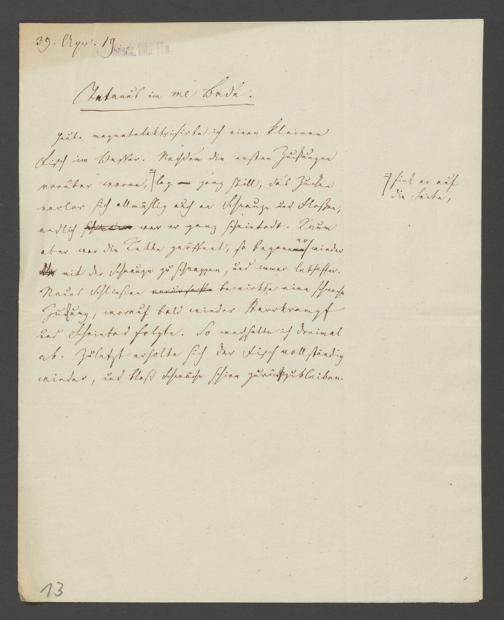 39. Apr. 19
Tetanus im me Bade.
Heute magnetelektrisirte ich einen kleinen
Fisch im Wasser. Nachdem die ersten Zuckungen
vorüber waren, lag ganz still, das Zucken
verlor sich allmählig auch an Schnauze und Flossen,
endlich war er ganz scheintodt. Kaum
aber war die Kette geöffnet, so begann er wieder
mit der Schnauze zu schnappen, und immer lebhafter.
Neues Schließen bewirkte eine schwache
Zuckung, worauf bald wieder Starrkrampf
und Scheintod folgte. So wechselte ich dreimal
ab. Zuletzt erholte sich der Fisch vollständig
wieder, und bloß Schwäche schien zurückzubleiben.
fiel er auf
die Seite,
13